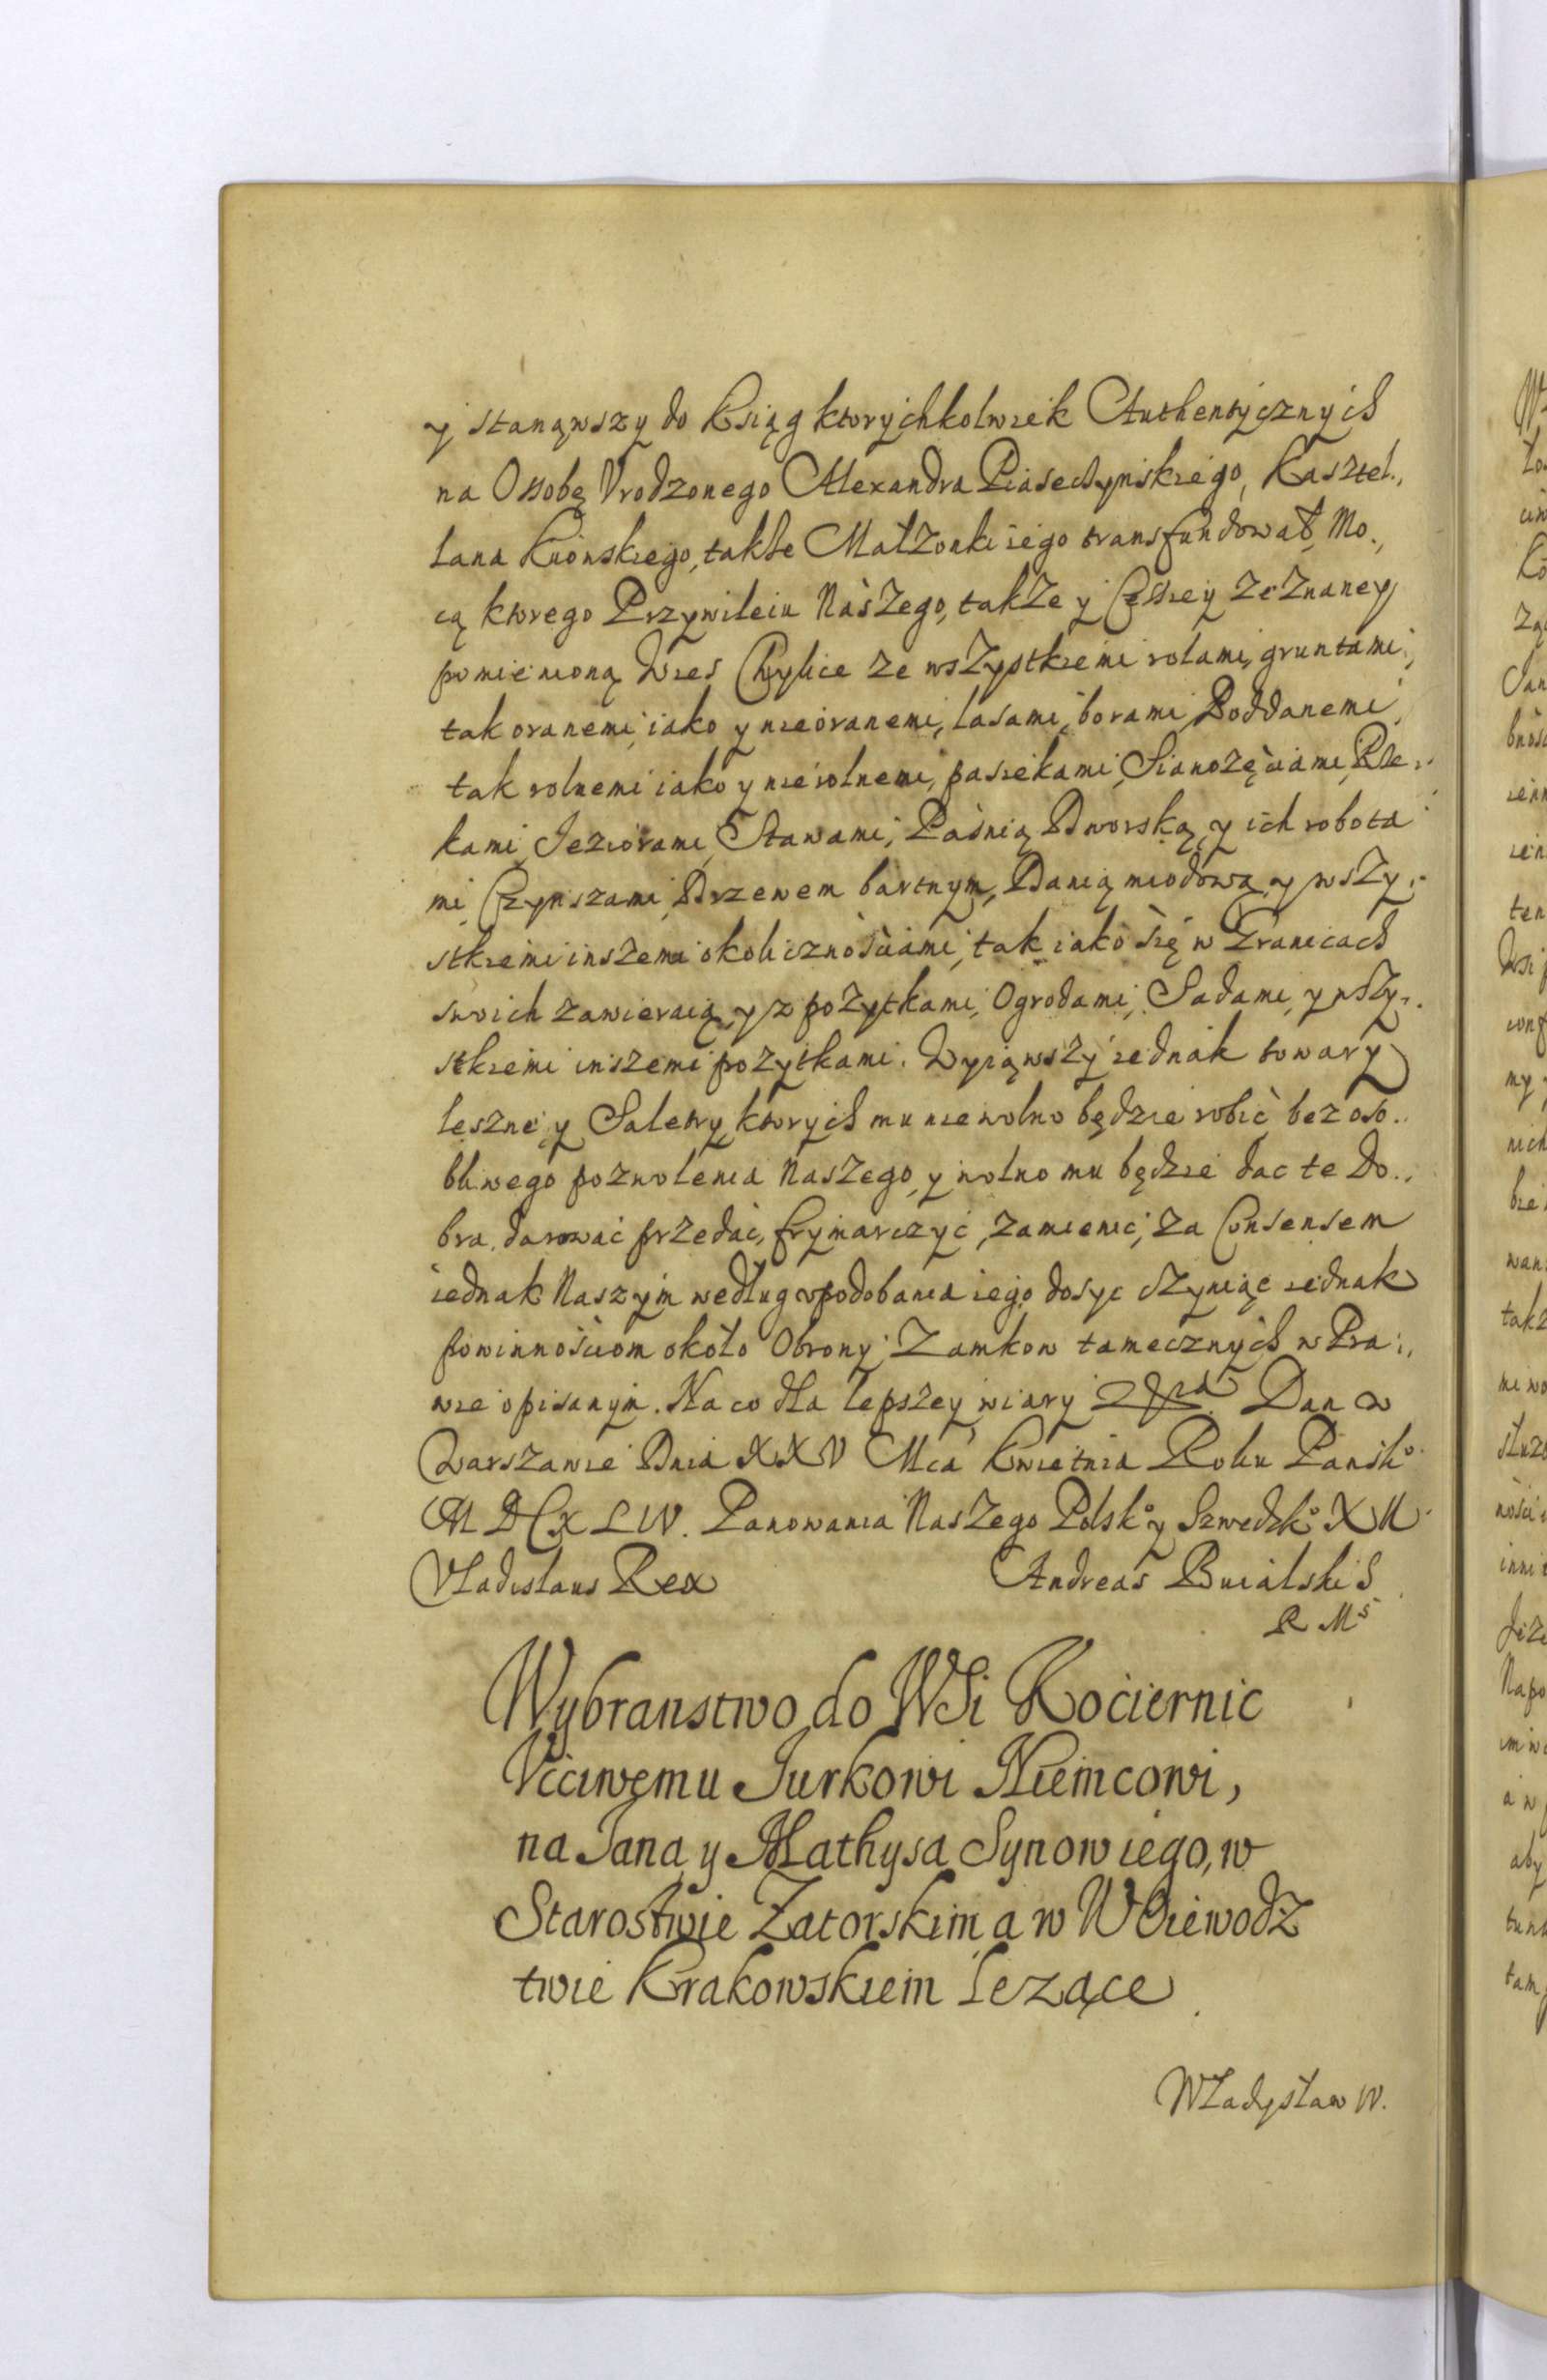 y stanąwszy do Ksiąg ktorychkolwiek Authentycznych
na Osobę Vrodzonego Alexandra Piaseczynskiego, Kasztel.,
lana Kiiowskiego, takze Małzonki iego transfundował, Mo.,
cą ktorego Przywileiu Naszego, takze y Cessiey zeznaney
pomienioną Wies Chylice ze wszystkiemi rolami, gruntami,
tak oranemi iako y nieoranemi, lasami, borami, Poddanemi
tak rolnemi iako y nierolnemi, pasiekami, Sianozęciami, Rze.,
kami, Jeziorami, Stawami, Paśnią Dworską, y ich robota
mi, Czynszami, Drzewem bartnym, Danią miodową, y wszy.,
stkiemi inszemi okolicznościami, tak iako się w Granicach
swoich zawieraią, y z pożytkami, Ogrodami, Sadami, y wszy.,
stkiemi inszemi pozytkami. Wyiąwszy iednak towary
leszne, y Saletry, ktorych mu nie wolno będzie robić bez oso.,
bliwego pozwolenia Naszego, y wolno mu będzie dac te Do.,
bra, darować przedać, frymarczyć, zamienić, za Consensem
iednak Naszym według vpodobania iego dosyc czyniąc iednak
powinnościom około Obrony Zamkow tamecznych w Pra.,
wie opisanym. Na co dla lepszey wiary Dan w
Warszawie Dnia XXV Mca Kwietnia Roku Pańsko
MDCXLIV. Panowania Naszego Polsko y Szwedzko XII
Vladislaus Rex Andreas Buialski S
R Ms
Wybranstwo do WSi Kociernic
Vcciwemu Jurkowi Niemcowi,
na Jana y Mathysa Synow iego, w
Starostwie Zatorskim a w WOiewodz
twie Krakowskiem lezące
Władysław IV.